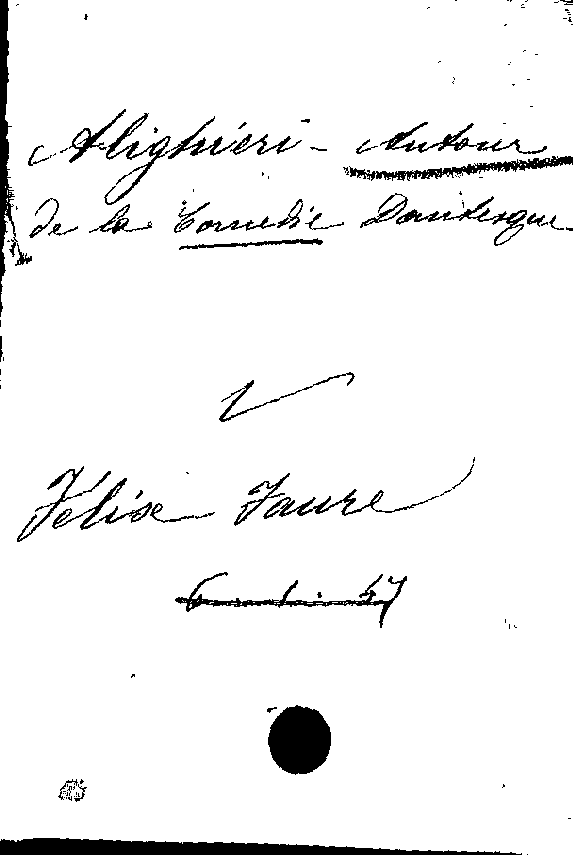 Alighiéri - Autour
de la Comédie Dantesque
V
Félise Faure
6 . 1 . 57